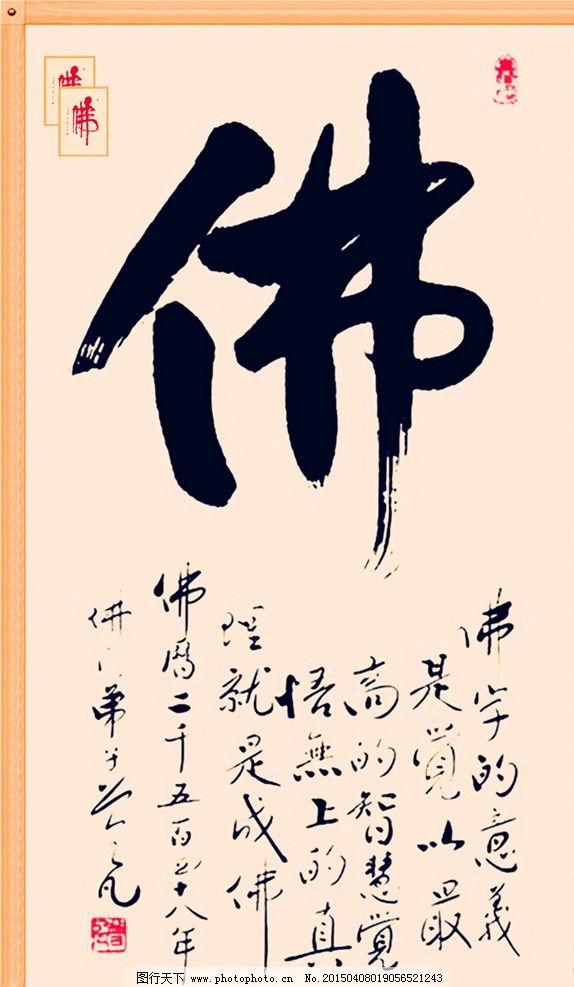 佛
佛
佛
佛字的意義
是覺以最
高的智慧覺
悟無上的真
理就是成佛
佛曆二千五百五十八年
佛門弟子
图行天下 www.photophoto.cn No.20150408019056521243